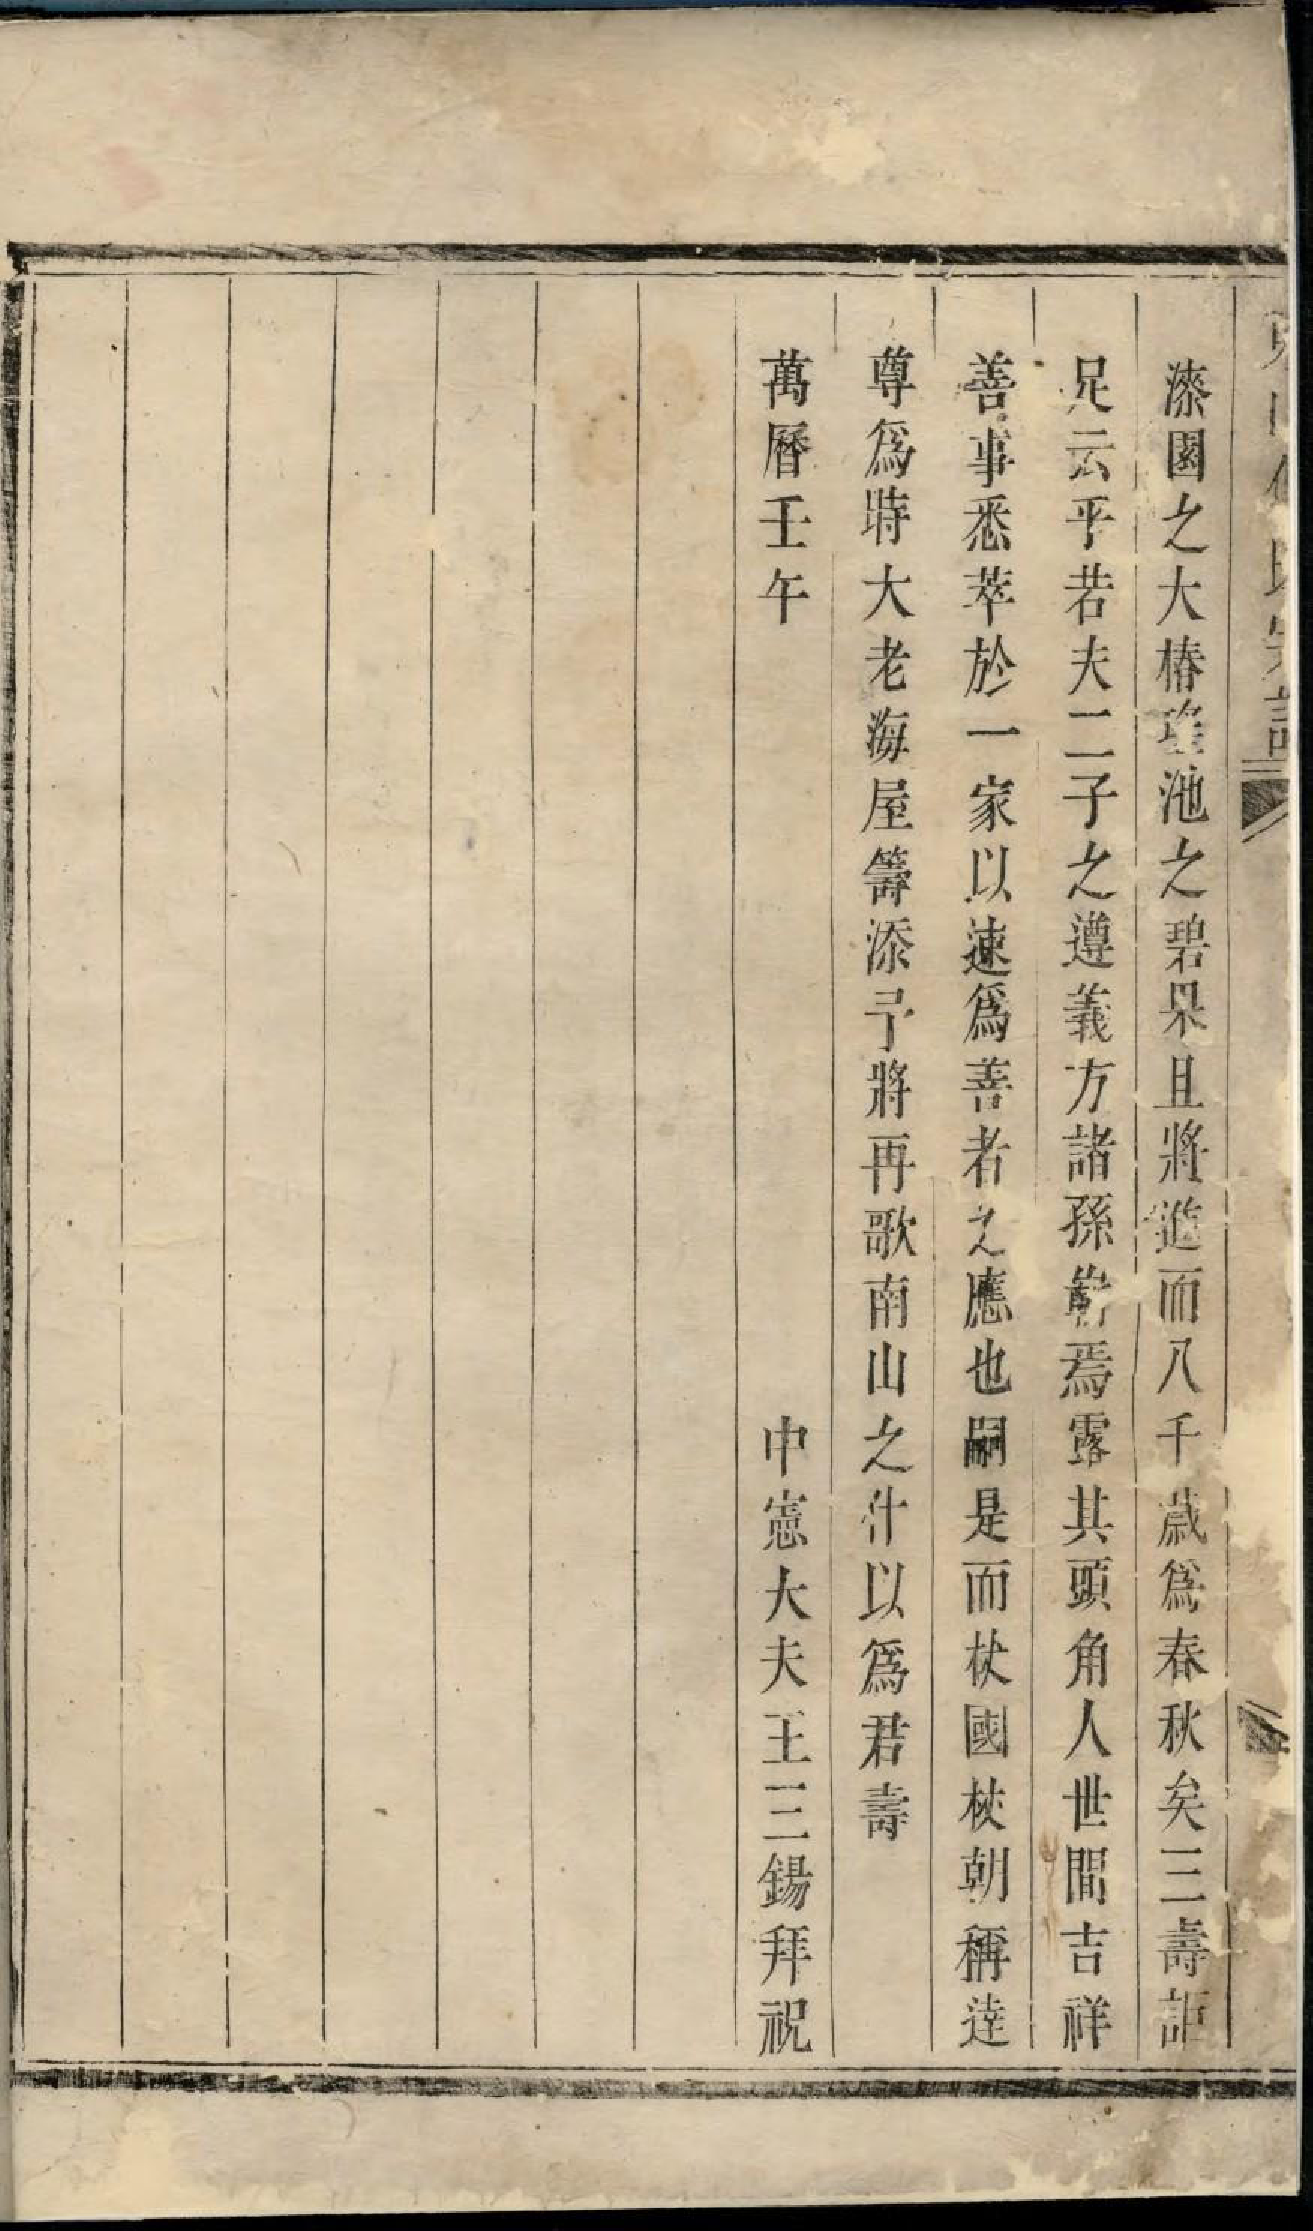 漆園之大椿瑤池之碧果且將進而八千歲爲春秋矣三壽詎
足云乎若夫二子之遵義方諸孫嶄焉露其頭角人世間吉祥
善事悉萃於一家以速爲善者之應也嗣是而杖國杖朝稱逹
尊爲時大老海屋籌添予將再歌南山之什以爲君壽
萬曆壬午 中憲大夫王三錫拜祝